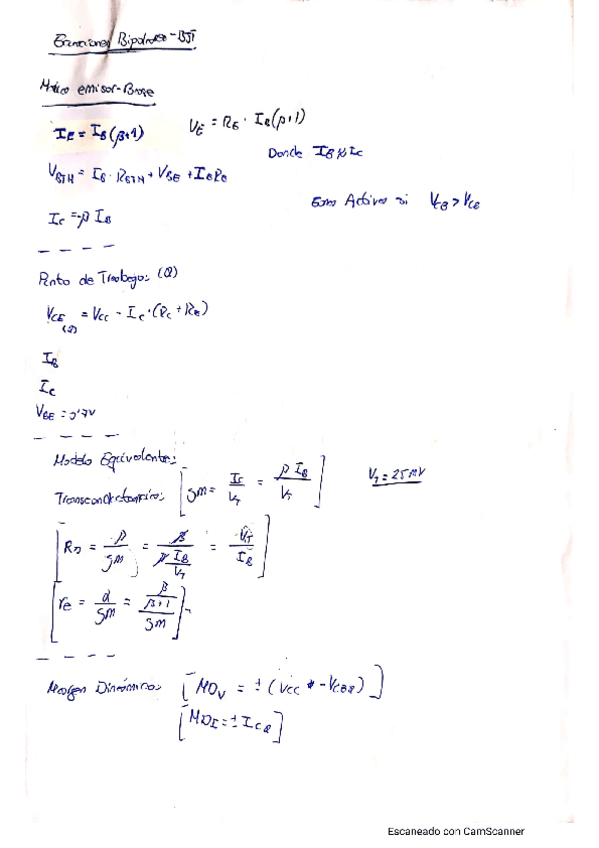 Ecuaciones Bipolares-BJT
Malla emisor-Base
IE = IB(β+1)
VE = RE · IB(β+1)
Donde IB≈IC
VBTH = IB · RBTH + VBE + IERE
Esta Activa si VCB > VCE
IC = β IB
Punto de Trabajo: (Q)
VCE(Q) = VCC - IC · (RC + RE)
IB
IC
VBE = 0'7V
Modelo Equivalente:
Transconductancia: [gm = IC/VT = β IB/VT]
VT = 25mV
[Rπ = β/gm = β/(β IB/VT) = VT/IB]
[re = α/gm = (β/(β+1))/gm]
Margen Dinámico: [MDV = ± (VCC - VCEQ)]
[MDI = ± ICQ]
Escaneado con CamScanner